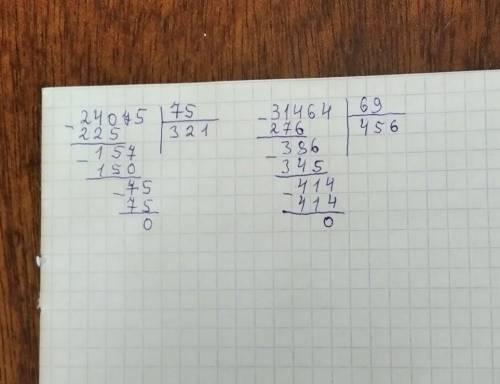 - 24075 | 75
225 | 321
- 157
150
- 75
75
0
- 31464 | 69
276 | 456
- 386
345
- 414
414
0